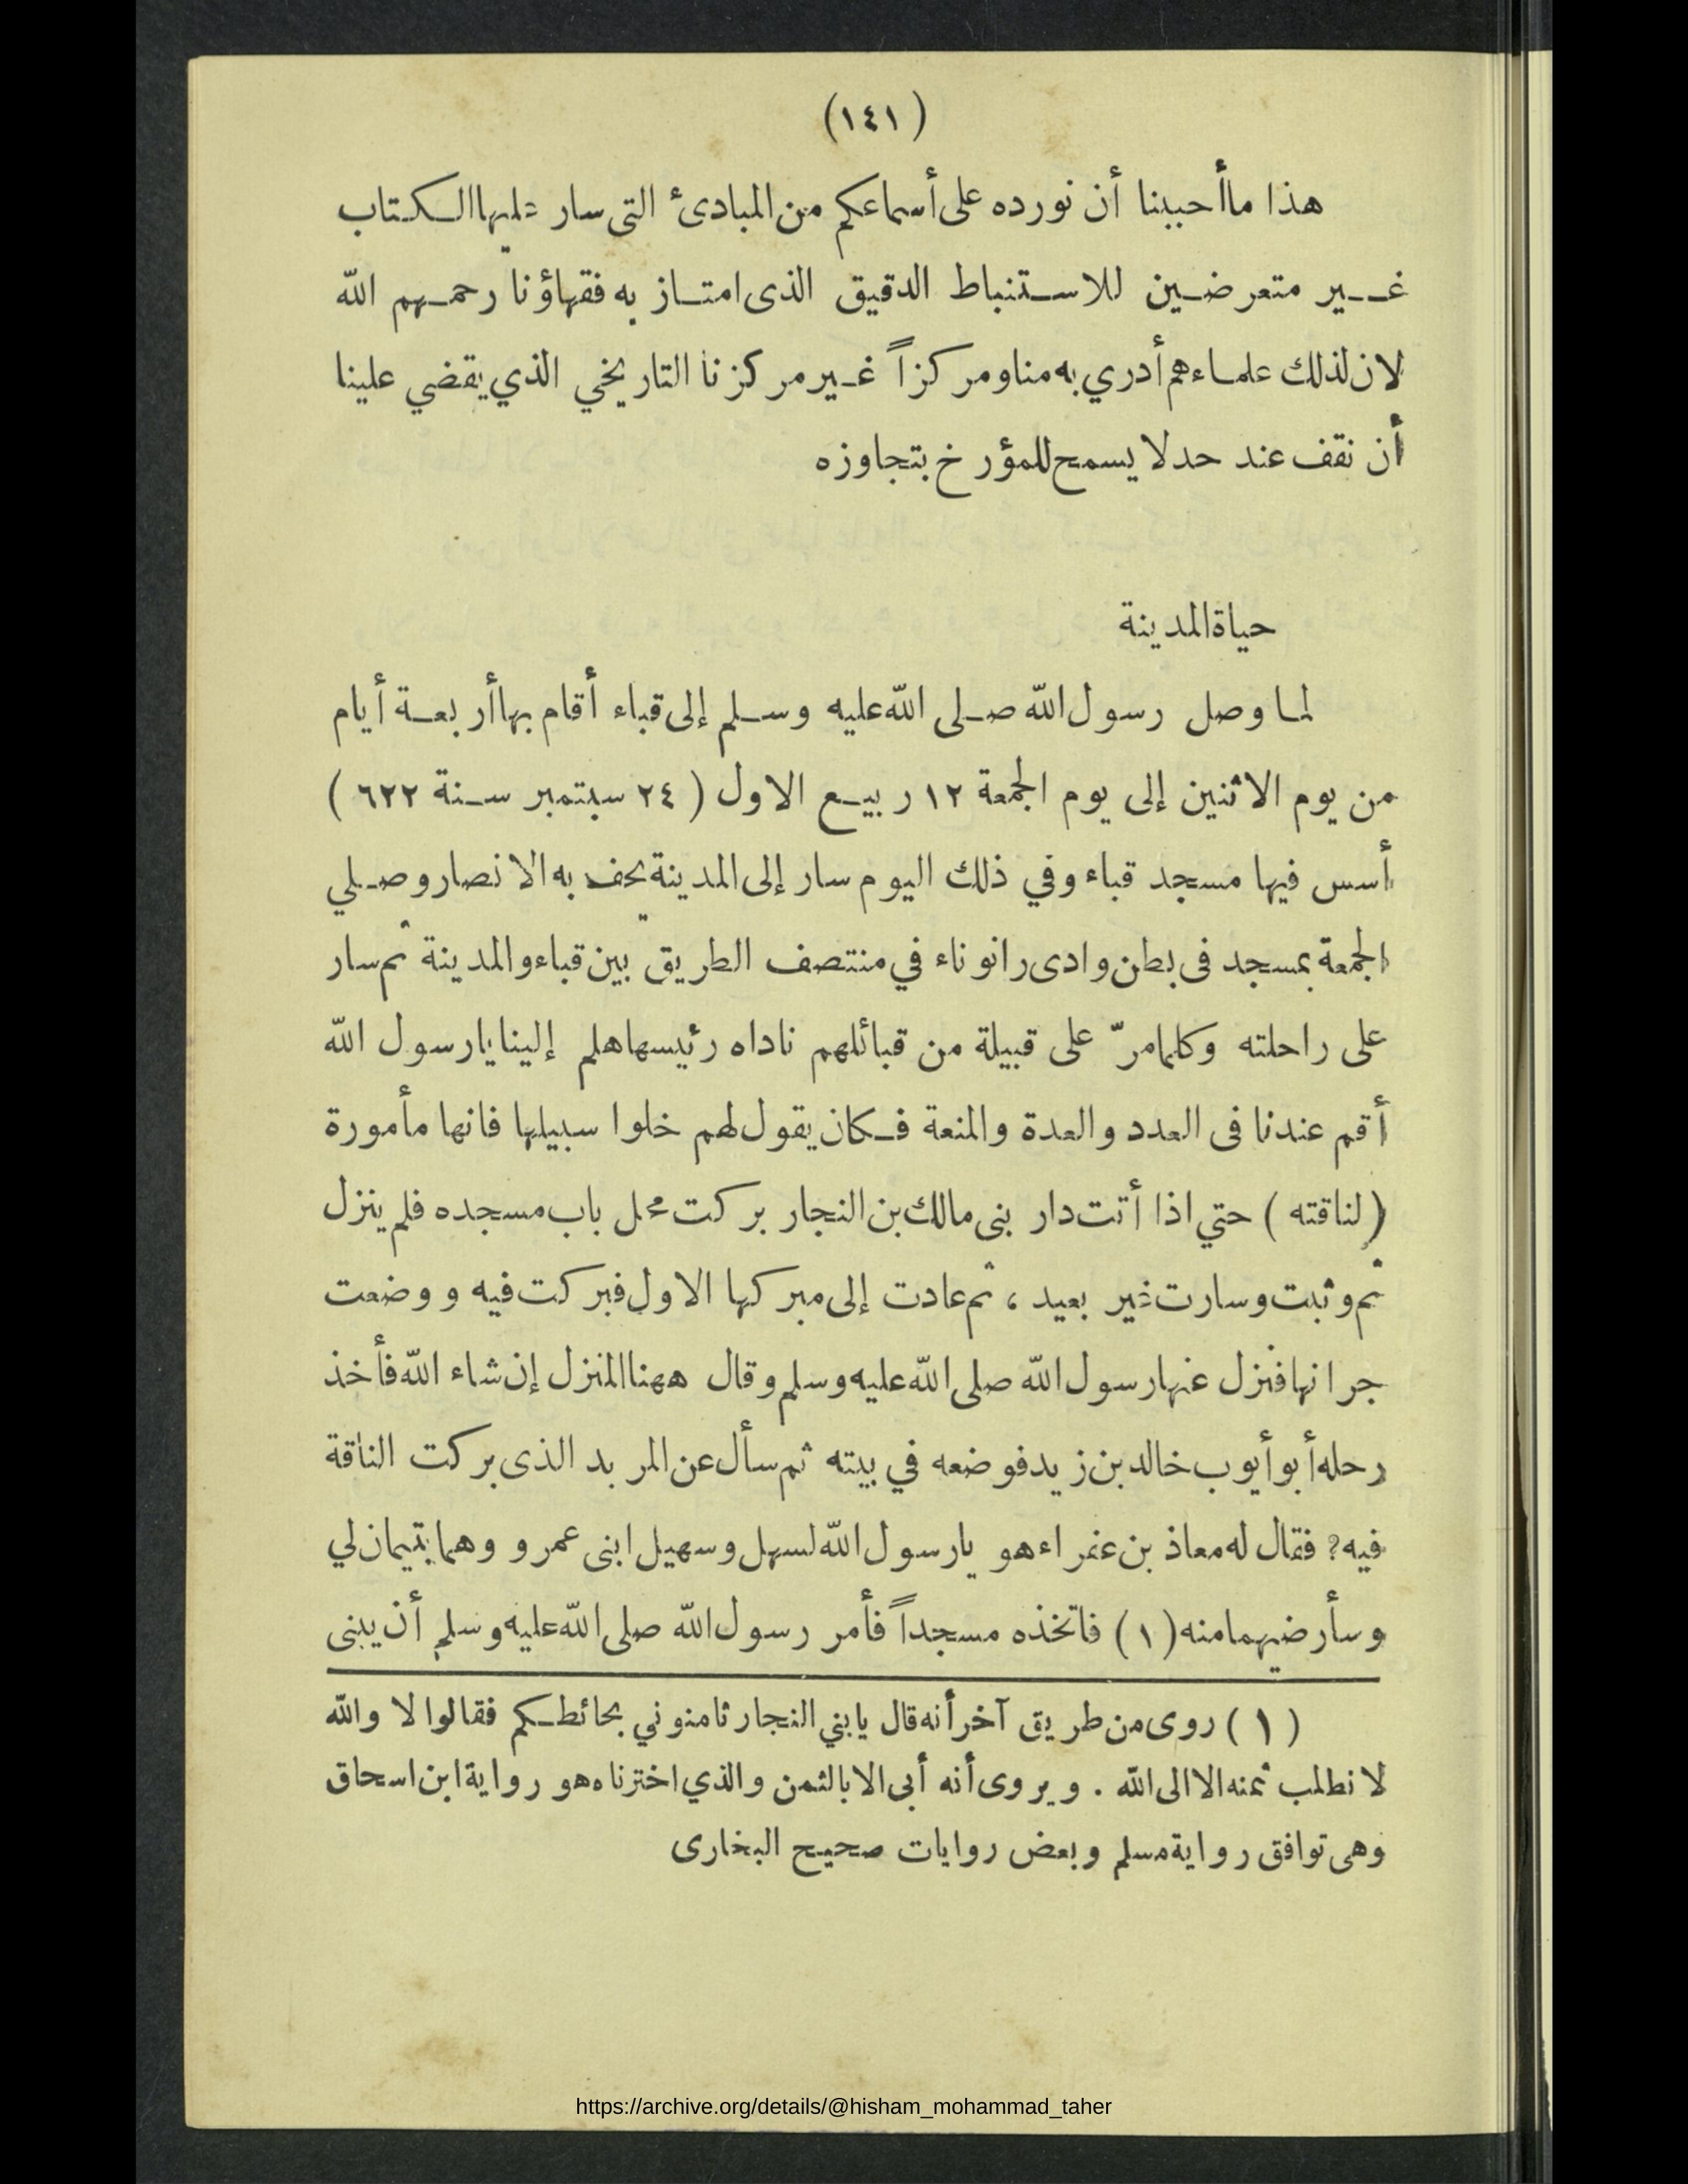 (١٤١)
هذا ما أحببنا أن نورده على أسماعكم من المبادئ التى سار عليها الكتاب
غير متعرضين للاستنباط الدقيق الذى امتاز به فقهاؤنا رحمهم الله
لان لذلك علماء هم أدري به منا ومركزاً غير مركزنا التاريخي الذي يقضي علينا
أن نقف عند حد لا يسمح للمؤرخ بتجاوزه
حياة المدينة
لما وصل رسول الله صلى الله عليه وسلم إلى قباء أقام بها أربعة أيام
من يوم الاثنين إلى يوم الجمعة ١٢ ربيع الاول ( ٢٤ سبتمبر سنة ٦٢٢ )
أسس فيها مسجد قباء وفي ذلك اليوم سار إلى المدينة يحف به الانصار وصلي
الجمعة بمسجد فى بطن وادى رانوناء في منتصف الطريق بين قباء والمدينة ثم سار
على راحلته وكلما مرّ على قبيلة من قبائلهم ناداه رئيسها هلم إلينا يا رسول الله
أقم عندنا فى العدد والعدة والمنعة فكان يقول لهم خلوا سبيلها فانها مأمورة
( لناقته ) حتي اذا أتت دار بنى مالك بن النجار بركت محل باب مسجده فلم ينزل
ثم وثبت وسارت غير بعيد ، ثم عادت إلى مبركها الاول فبركت فيه ووضعت
جرانها فنزل عنها رسول الله صلى الله عليه وسلم وقال ههنا المنزل إن شاء الله فأخذ
رحله أبو أيوب خالد بن زيد فوضعه في بيته ثم سأل عن المربد الذى بركت الناقة
فيه؟ فقال له معاذ بن عفراء هو يا رسول الله لسهل وسهيل ابنى عمرو وهما يتيمان لي
وسأرضيهما منه (١) فاتخذه مسجداً فأمر رسول الله صلى الله عليه وسلم أن يبنى
(١) روى من طريق آخر أنه قال يا بني النجار ثامنوني بحائطكم فقالوا لا والله
لا نطلب ثمنه الا الى الله . ويروى أنه أبى الا بالثمن والذي اخترناه هو رواية ابن اسحاق
وهى توافق رواية مسلم وبعض روايات صحيح البخارى
https://archive.org/details/@hisham_mohammad_taher